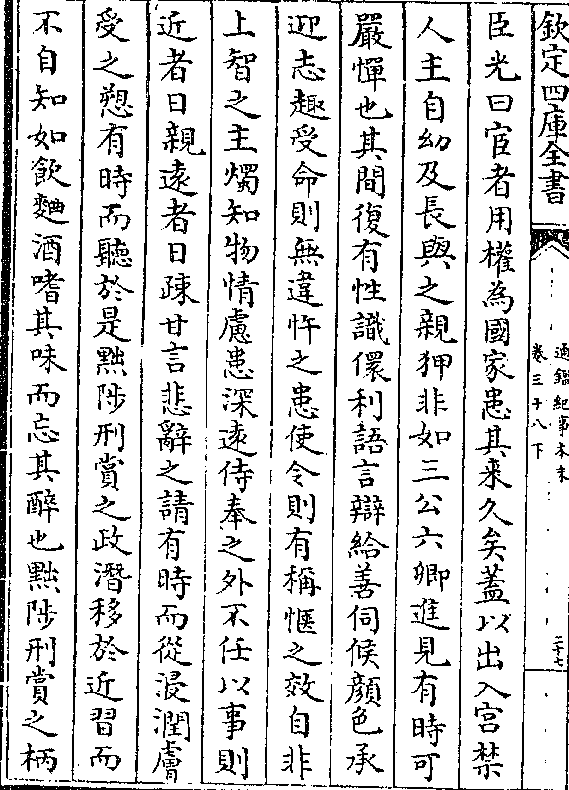 欽定四庫全書
通鑑紀事本末
卷三十八下
二十七
臣光曰宦者用權為國家患其来久矣蓋以出入宮禁
人主自幼及長與之親狎非如三公六卿進見有時可
嚴憚也其間復有性識儇利語言辯給善伺候顔色承
迎志趣受命則無違忤之患使令則有稱愜之效自非
上智之主燭知物情慮患深遠侍奉之外不任以事則
近者日親遠者日疎甘言悲辭之請有時而從浸潤膚
受之愬有時而聽於是黜陟刑賞之政潛移於近習而
不自知如飲麴酒嗜其味而忘其醉也黜陟刑賞之柄